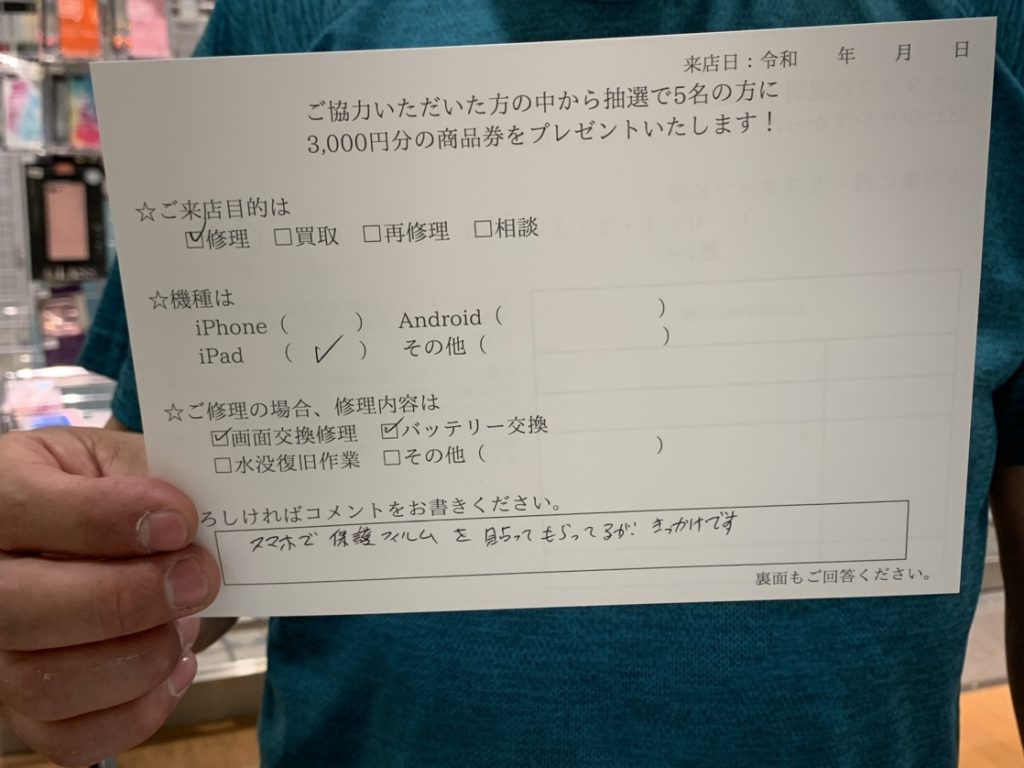 来店日：令和　年　月　日
ご協力いただいた方の中から抽選で5名の方に
3,000円分の商品券をプレゼントいたします！
☆ご来店目的は
☑修理　□買取　□再修理　□相談
☆機種は
iPhone（　　　）　Android（　　　　　　　）
iPad　（　✓　）　その他（　　　　　　　）
☆ご修理の場合、修理内容は
☑画面交換修理　☑バッテリー交換
□水没復旧作業　□その他（　　　　　　　）
ろしければコメントをお書きください。
スマホで保護フィルムを貼ってもらってるが きっかけです
裏面もご回答ください。